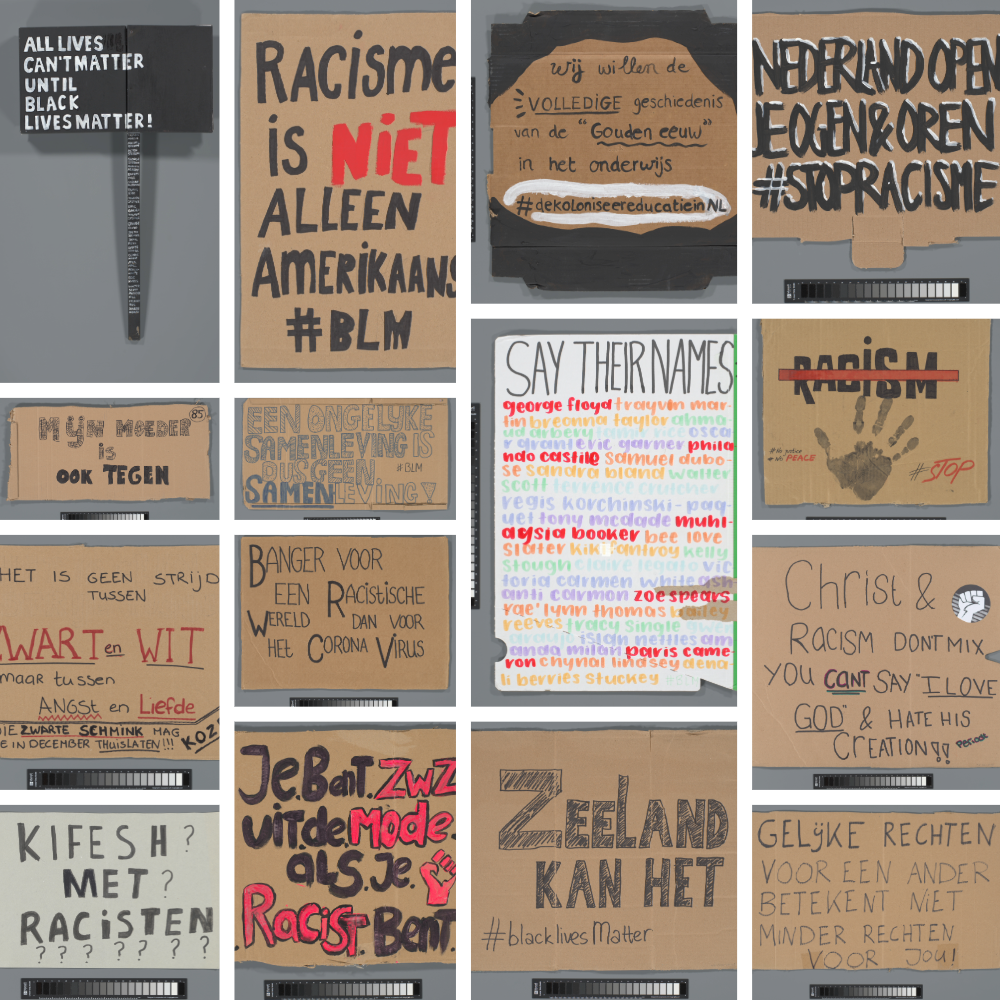 ALL LIVES
CAN'T MATTER
UNTIL
BLACK
LIVES MATTER!
RACISME
is NiET
ALLEEN
AMERIKAANS
#BLM
Wij willen de
VOLLEDIGE geschiedenis
van de "Gouden eeuw"
in het onderwijs
#dekoloniseereducatieinNL
NEDERLAND OPEN
JE OGEN & OREN
#STOPRACISME
MijN MOEDER
85
is
OOK TEGEN
EEN ONGELYKE
SAMENLEVING IS
DUS GEEN
#BLM
SAMENLEVING
SAY THEIR NAMES
george floyd trayvon mar-
tin breonna taylor ahma-
ud arbery
oscar
r grant eric garner phila
ndo castile samuel dubo-
se sandra bland walter
scott terrence crutcher
regis korchinski-paq-
uet tony mcdade muhl-
aysia booker bee love
slater kiki fantroy kelly
stough claire legato vic
toria carmen white ash
anti carmon zoe spears
rae'lynn thomas bailey
reeves tracy single
islan nettles am
anda milan paris came-
ron chynal lindsey dena-
li berries stuckey
RACiSM
#No justice
#No PEACE
#STOP
HET IS GEEN STRIJD
TUSSEN
ZWART en WIT
maar tussen
ANGSt en Liefde
DIE ZWARTE SCHMINK MAG
JE IN DECEMBER THUISLATEN!!!
KOZ
BANGER VOOR
EEN RACiStiSCHE
WERELD DAN VOOR
HET CORONA VIRUS
Christ &
RACISM DONT MIX
YOU CANT SAY "I LOVE
GOD" & HATE HIS
CREATION!! Periodt
KIFESH?
MET?
RACISTEN
? ? ? ? ? ? ?
Je.BenT.ZWZ
uit.de.Mode.
alS.Je.
RaciST BenT.
ZEELAND
KAN HET
#blacklivesMatter
GELijKE RECHTEN
VOOR EEN ANDER
BETEKENT NiET
MINDER RECHTEN
VOOR JOU!